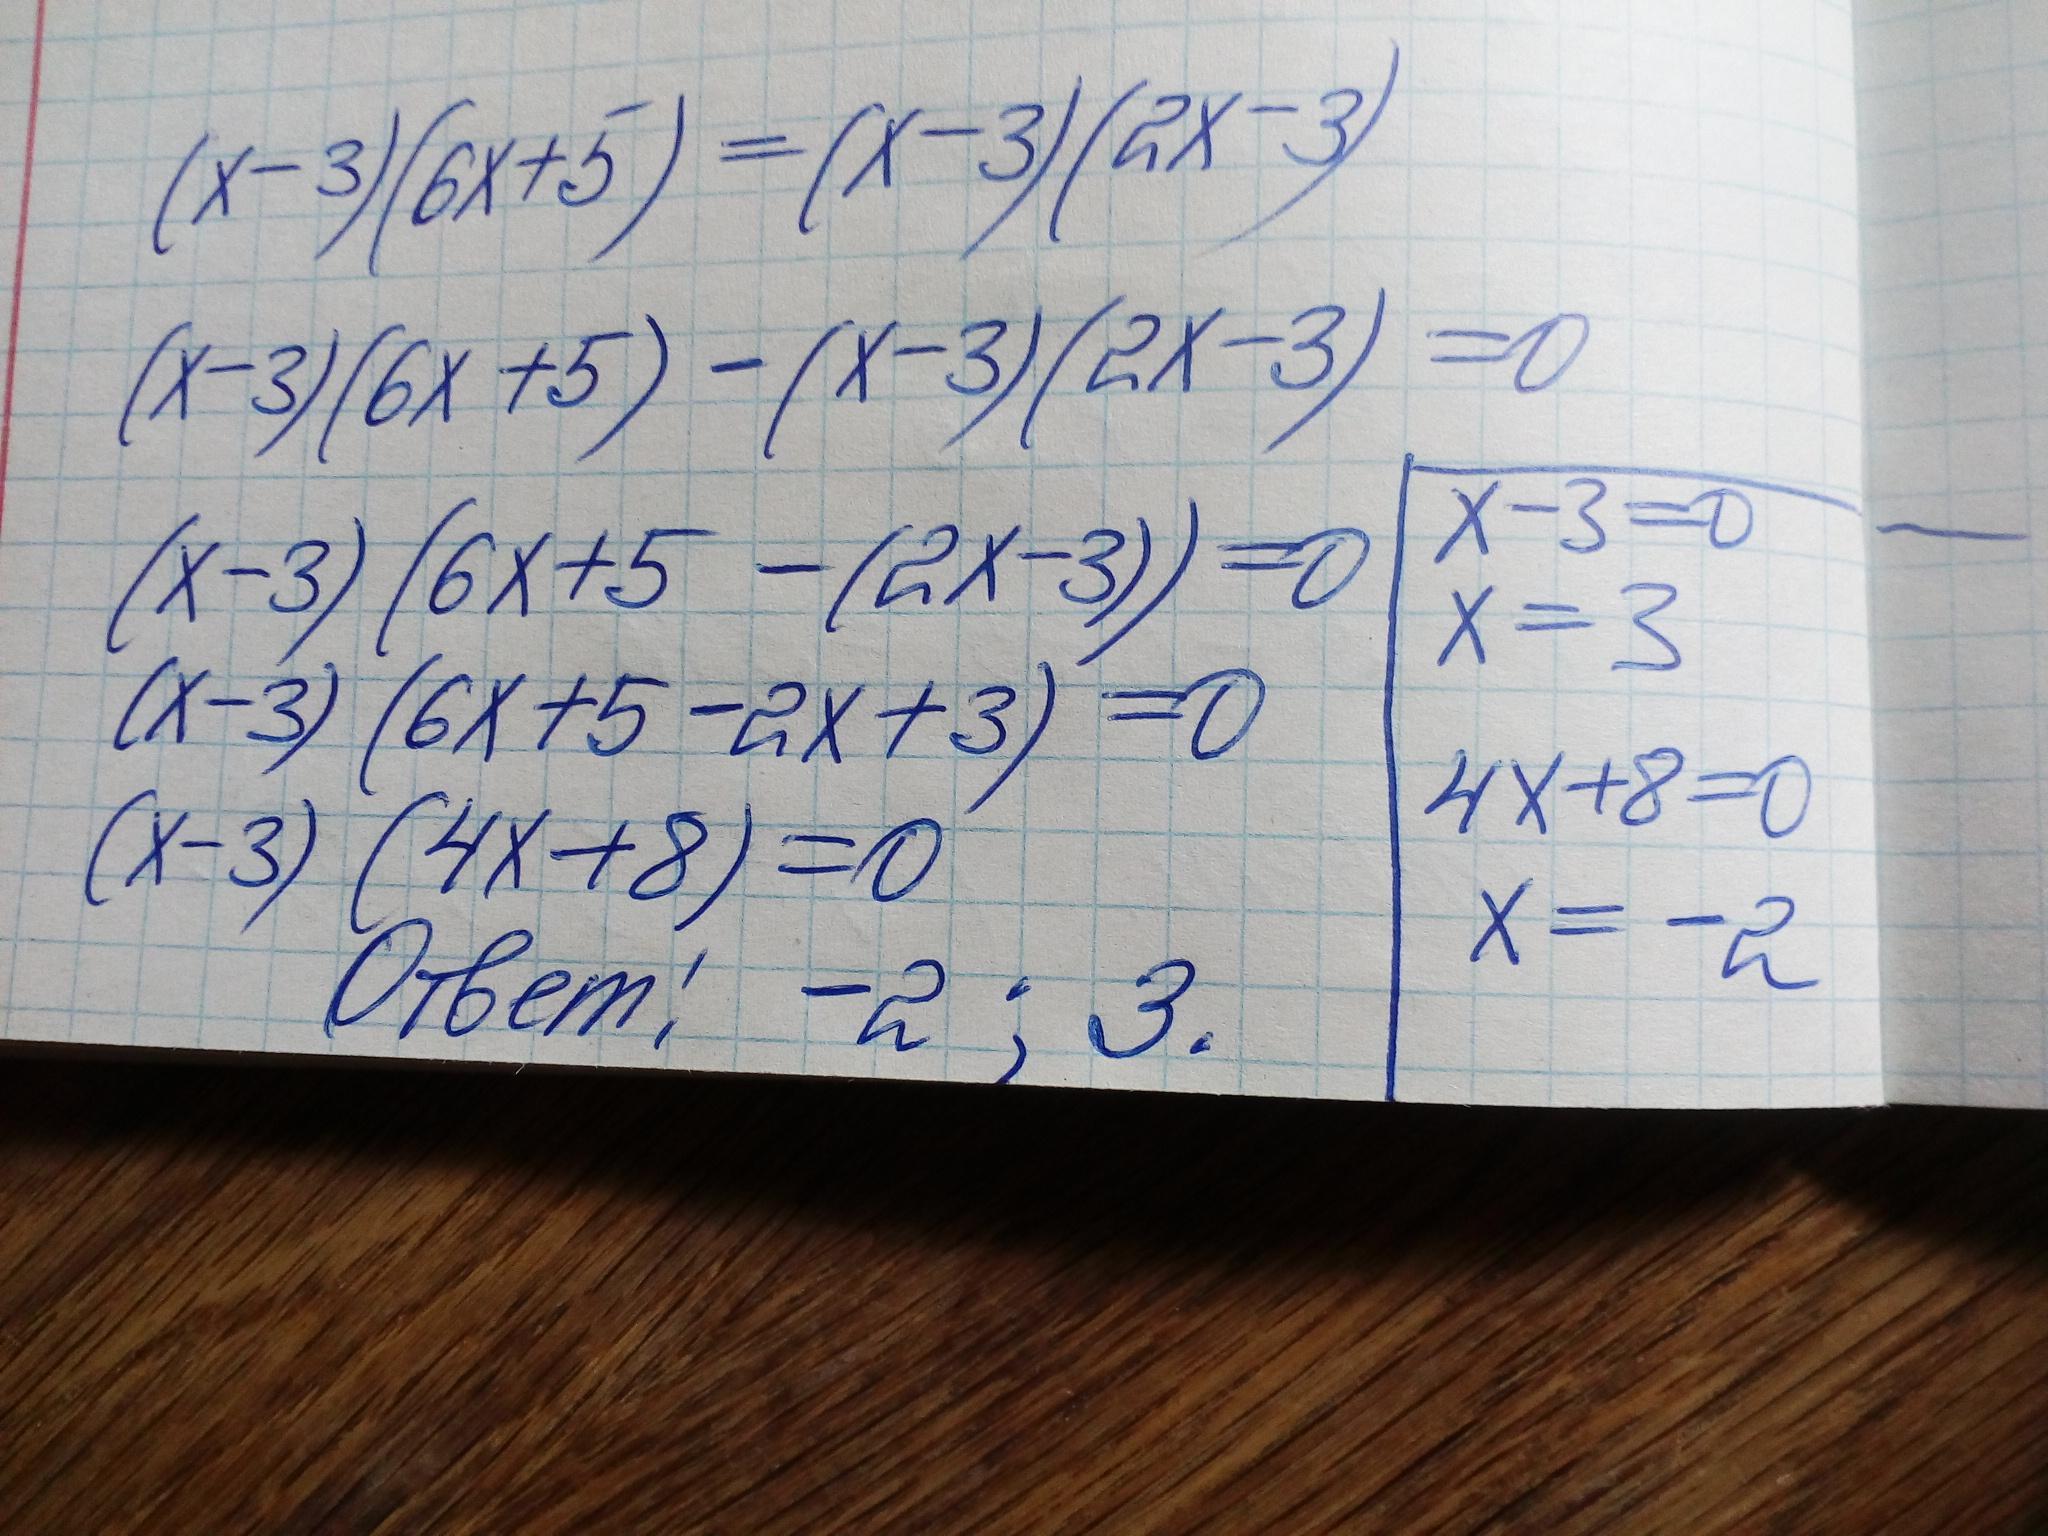 (x-3)(6x+5)=(x-3)(2x-3)
(x-3)(6x+5)-(x-3)(2x-3)=0
(x-3)(6x+5-(2x-3))=0
(x-3)(6x+5-2x+3)=0
(x-3)(4x+8)=0
Ответ: -2; 3.
x-3=0
x=3
4x+8=0
x=-2